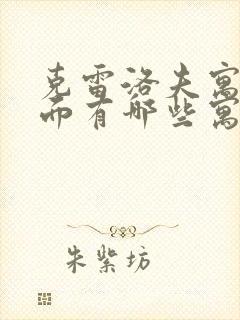 克雷洛夫寓
而有哪些寓
朱紫坊